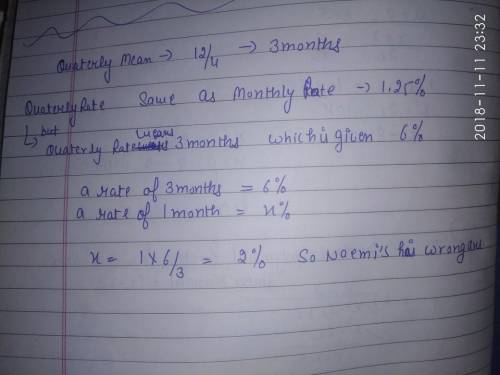 Quaterly Mean → 12/4 → 3 months
Quaterly Rate Same as Monthly Rate → 1.25%
↳ but Quaterly Rate means 3 months which is given 6%
a rate of 3 months = 6%
a rate of 1 month = x%
x = 1 x 6/3 = 2% So Noemi's wrong
2018-11-11 23:32